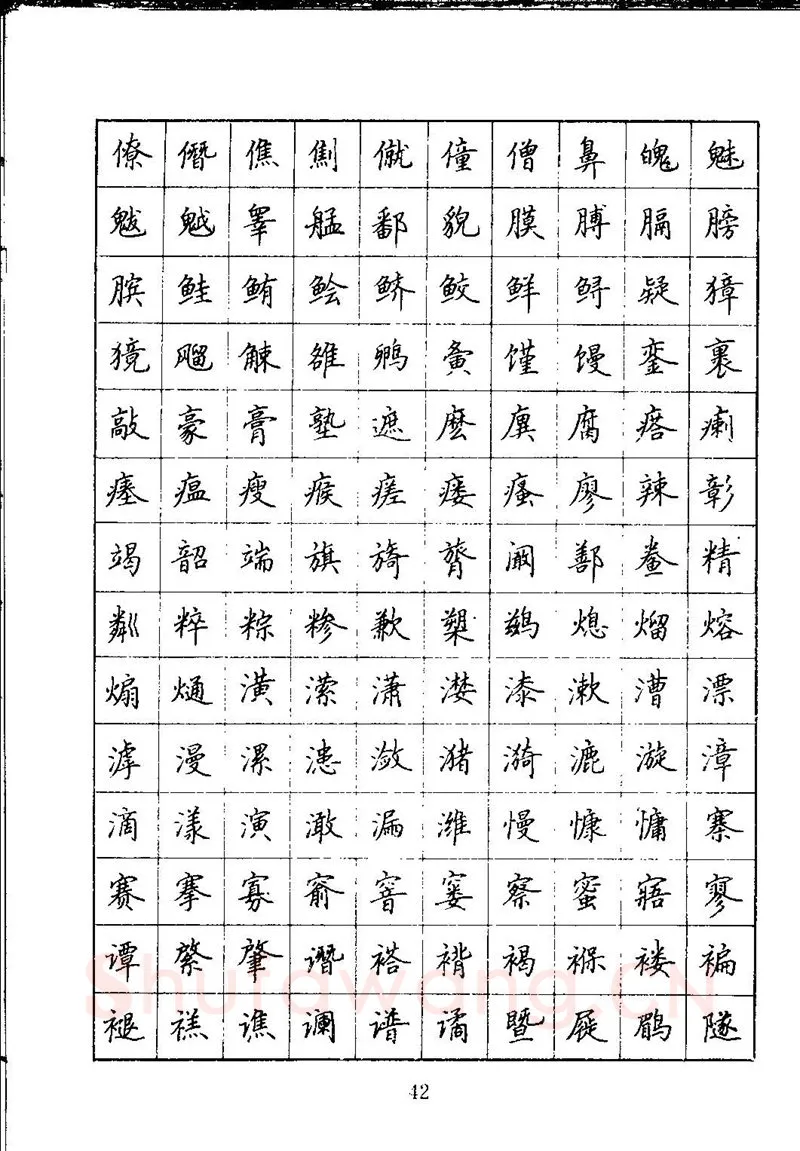 僚 僭 僬 劁 僦 僮 僧 鼻 魄 魅
魃 魆 睾 艋 鄱 貌 膜 膊 膈 膀
膑 鲑 鲔 鲙 鲚 鲛 鲜 鲟 疑 獐
獍 飗 觫 雒 孵 夤 馑 馒 銮 裹
敲 豪 膏 塾 遮 麽 廙 腐 瘩 瘌
瘗 瘟 瘦 瘊 瘥 瘘 瘙 廖 辣 彰
竭 韶 端 旗 旖 膂 阚 鄯 鲞 精
粼 粹 粽 糁 歉 槊 鹚 熄 熘 熔
煽 熥 潢 潆 潇 漤 漆 漱 漕 漂
滹 漫 漯 漶 潋 潴 漪 漉 漩 漳
滴 漾 演 澉 漏 潍 慢 慷 慵 寨
赛 搴 寡 窬 窨 窭 察 蜜 寤 寥
谭 綮 肇 谮 褡 褙 褐 褓 褛 褊
Shufawang.CN
褪 禚 谯 谰 谱 谲 暨 屣 鹛 隧
42